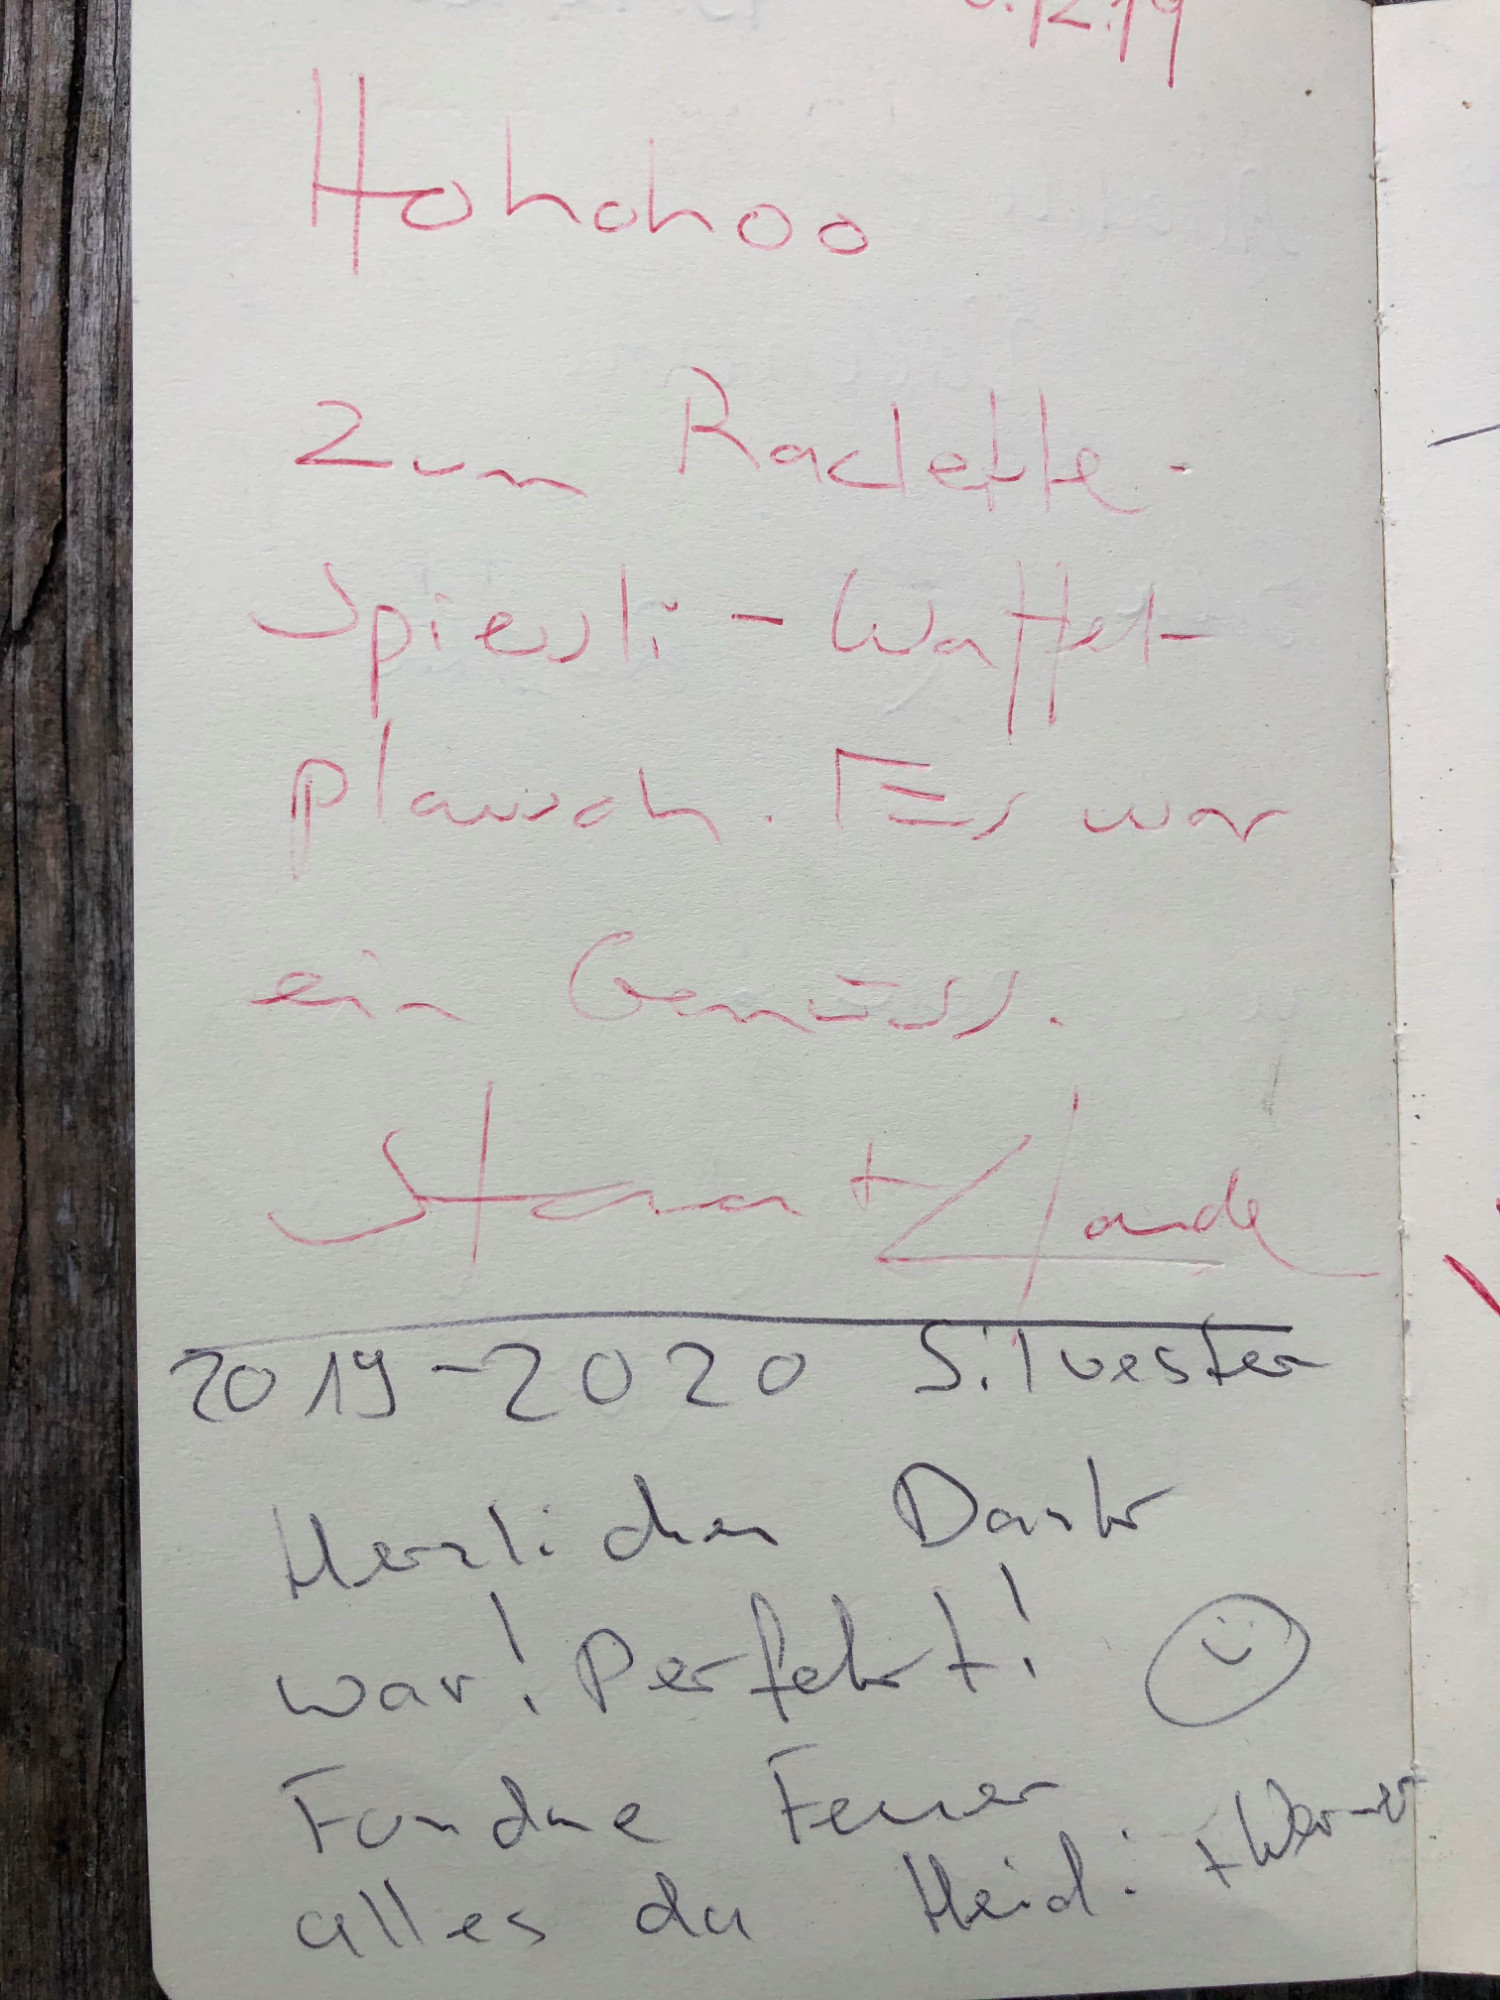 .12.19
Hohohoo
Zum Raclette-
Spiessli-Waffel-
plausch. Es war
ein Genuss.
+
2019-2020 Silvester
Herzlichen Dank
war! Perfekt!
Fondue Feuer
alles da Heidi + Werner